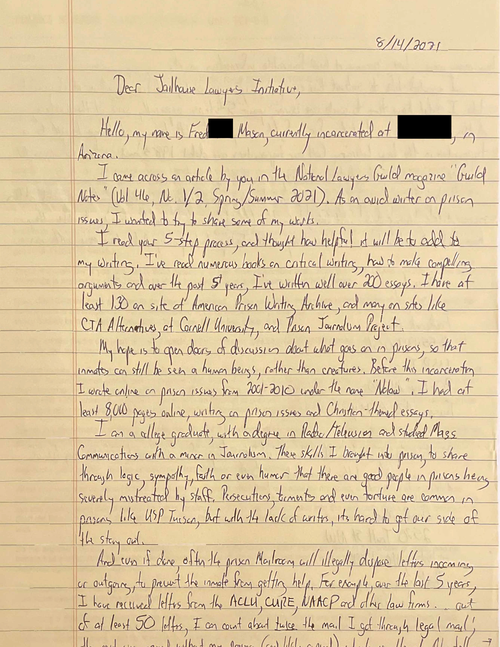 8/14/2021
Dear Jailhouse Lawyers Initiative,
Hello, my name is Fred Mason, currently incarcerated at , in
Arizona.
I came across an article by you in the National Lawyers Guild magazine "Guild
Notes" (Vol 46, No. 1/2, Spring/Summer 2021). As an avid writer on prison
issues, I wanted to try to share some of my works.
I read your 5-step process, and thought how helpful it will be to add to
my writing. I've read numerous books on critical writing, how to make compelling
arguments and over the past 5 years, I've written well over 200 essays. I have at
least 130 on site at American Prison Writing Archive, and many on sites like
CTA Alternatives, at Cornell University, and Prison Journalism Project.
My hope is to open doors of discussion about what goes on in prisons, so that
inmates can still be seen a human beings, rather than creatures. Before this incarceration
I wrote online on prison issues from 2001-2010 under the name I had at
least 8,000 pages online, writing on prison issues and Christian-themed essays.
I am a college graduate, with a degree in Radio/Television and studied Mass
Communications with a minor in Journalism. These skills I brought into prison, to share
through logic, sympathy, faith or even humor that there are good people in prisons being
severely mistreated by staff. Persecutions, torments and even torture are common in
prisons like USP Tucson, but with the lack of writers, it's hard to get our side of
the story out.
And even if done, often the prison Mailroom will illegally dispose letters incoming
or outgoing, to prevent the inmate from getting help. For example, over the last 5 years,
I have received letters from the ACLU, CURE, NAACP and other law firms... out
of at least 50 letters, I can count about twice the mail I get through legal mail;